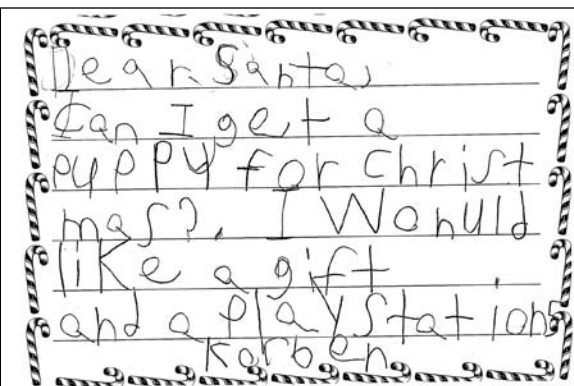 Dear Santa,
Can I get a
puppy for Christ
mas?. I Wonuld
like a gift
and a playstation5
Korben